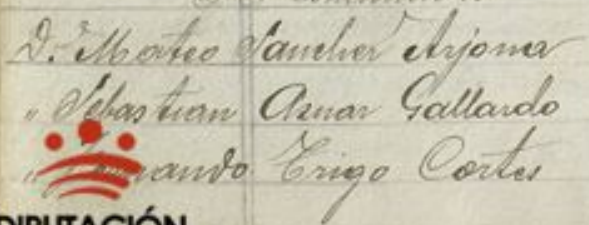 D. Mateo Sancher Arjona
" Sebastian Aznar Gallardo
" Fernando Trigo Cortes
DIPUTACIÓN